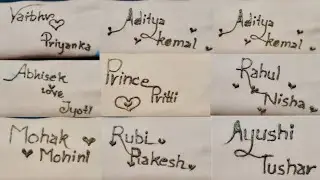 Vaibhv
Priyanka
Aditya
Kemal
Aditya
Kemal
Abhisek
Love
Jyoti
Prince
Pritti
Rahul
Nisha
Mohak
Mohini
Rubi
Rakesh
Ayushi
Tushar